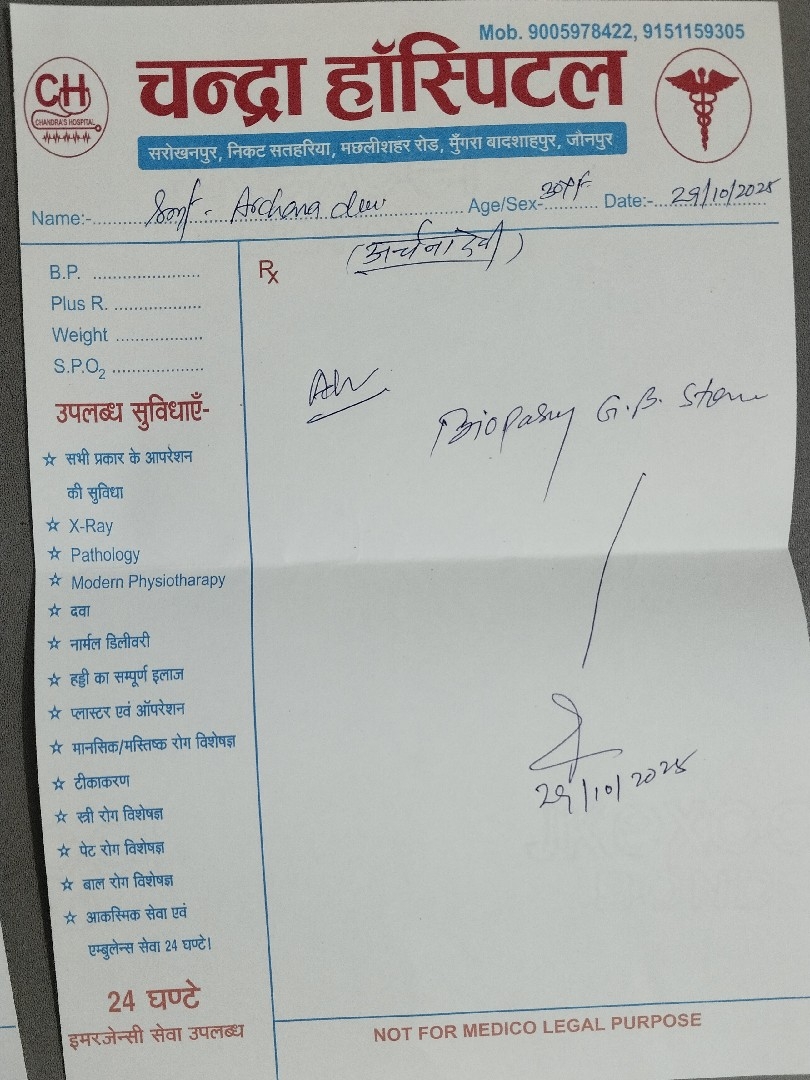 Mob. 9005978422, 9151159305
CH
CHANDRA'S HOSPITAL
चन्द्रा हॉस्पिटल
सरोखनपुर, निकट सतहरिया, मछलीशहर रोड, मुँगरा बादशाहपुर, जौनपुर
Name:- Smt- Archana devi Age/Sex- 30yr/F Date:- 29/10/2025
(अर्चना देवी)
B.P.
Plus R.
Weight
S.P.O2
Rx
Adv.
Biopasy G.B. Stone
29/10/2025
उपलब्ध सुविधाएँ-
☆ सभी प्रकार के आपरेशन
की सुविधा
☆ X-Ray
☆ Pathology
☆ Modern Physiotharapy
☆ दवा
☆ नार्मल डिलीवरी
☆ हड्डी का सम्पूर्ण इलाज
☆ प्लास्टर एवं ऑपरेशन
☆ मानसिक/मस्तिष्क रोग विशेषज्ञ
☆ टीकाकरण
☆ स्त्री रोग विशेषज्ञ
☆ पेट रोग विशेषज्ञ
☆ बाल रोग विशेषज्ञ
☆ आकस्मिक सेवा एवं
एम्बुलेन्स सेवा 24 घण्टे।
24 घण्टे
इमरजेन्सी सेवा उपलब्ध
NOT FOR MEDICO LEGAL PURPOSE